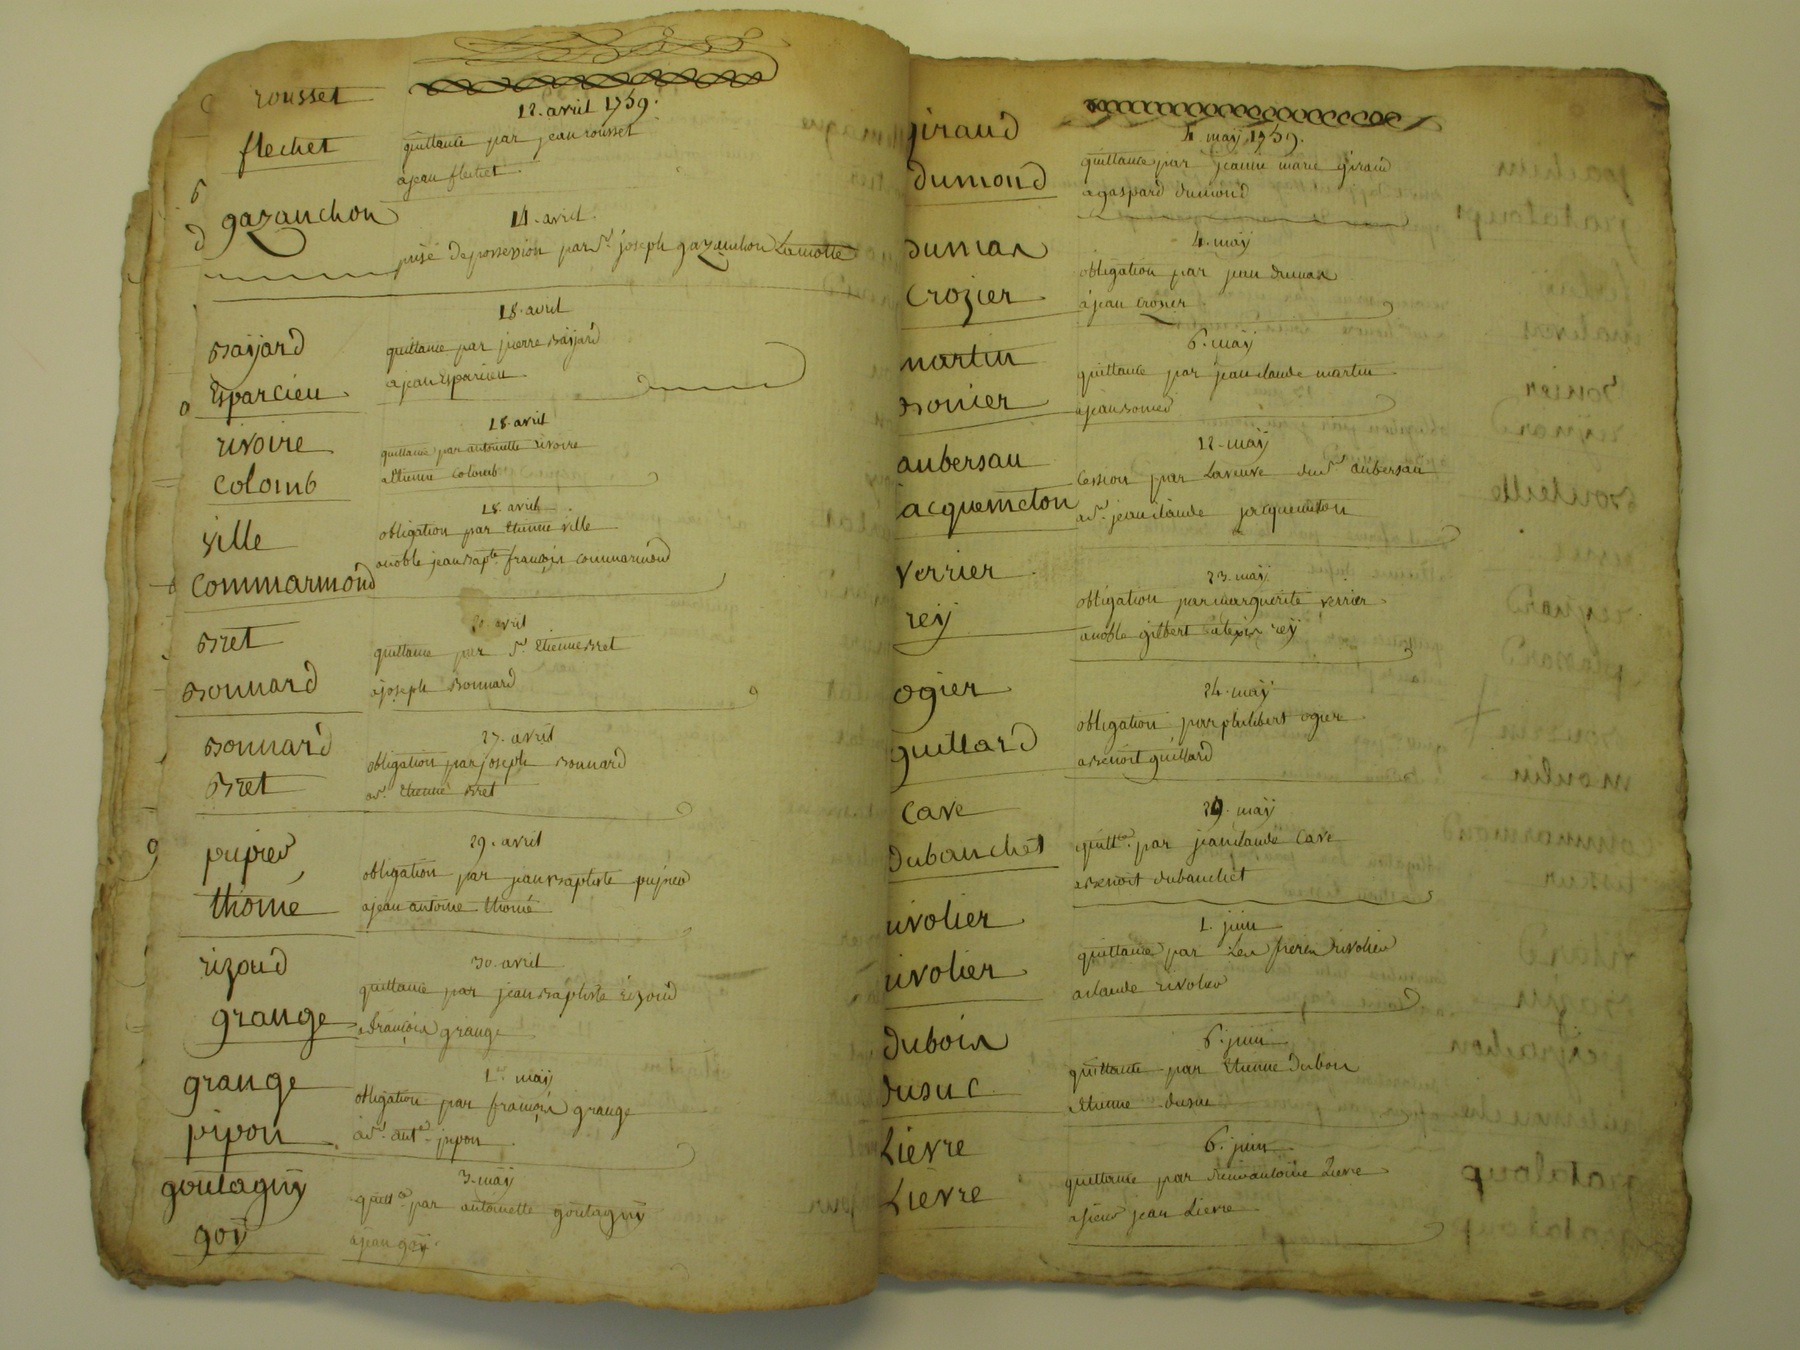 rousset
12. avril 1759.
flechet
quittance par jean rousset
a jean flechet.
gazanchon
14. avril.
prise de possession par Sr. joseph gazanchon Lamotte
18. avril
Bayard
quittance par pierre Bayard
Esparcieu
a jean Esparcieu
18. avril
rivoire
quittance par antoinette rivoire
colomb
a Etienne colomb
18. avril
ville
obligation par Etienne ville
commarmond
a noble jean Bapte. françois commarmond
avril
Bret
quittance par Sr. Etienne Bret
Bonnard
a joseph Bonnard
27. avril
Bonnard
obligation par joseph Bonnard
Bret
a Sr. Etienne Bret
29. avril
obligation par jean Baptiste
thomé
a jean antoine thomé
30. avril
rizoud
quittance par jean Baptiste rizoud
grange
a françois grange
1er. maÿ
grange
obligation par françois grange
pipon
a Sr. ante. pipon
3. maÿ
goutagnÿ
quittce. par antoinette goutagnÿ
goÿ
a jean goÿ.
4. maÿ 1759.
giraud
quittance par jeanne marie giraud
dumond
a gaspard dumond
4. maÿ
dumas
obligation par jean dumas
crozier
a jean crozier
6. maÿ
martin
quittance par jean claude martin
Bonier
a jean Bonier
12. maÿ
aubersau
cession par La veuve du Sr. aubersau
jacquemeton
a Sr. jean claude jacquemeton
23. maÿ
verrier
obligation par marguerite verrier
reÿ
a noble gilbert alexis reÿ
24. maÿ
ogier
obligation par philibert ogier
guillard
a Benoit guillard
29. maÿ
cave
quittce. par jean claude cave
dubanchet
a Benoit dubanchet
1. juin
rivolier
quittance par Les freres rivolier
rivolier
a claude rivolier
6. juin
dubois
quittance par Etienne dubois
dusuc
a Etienne dusuc
6. juin
Lievre
quittance par antoine Lievre
Lievre
a sieur jean Lievre